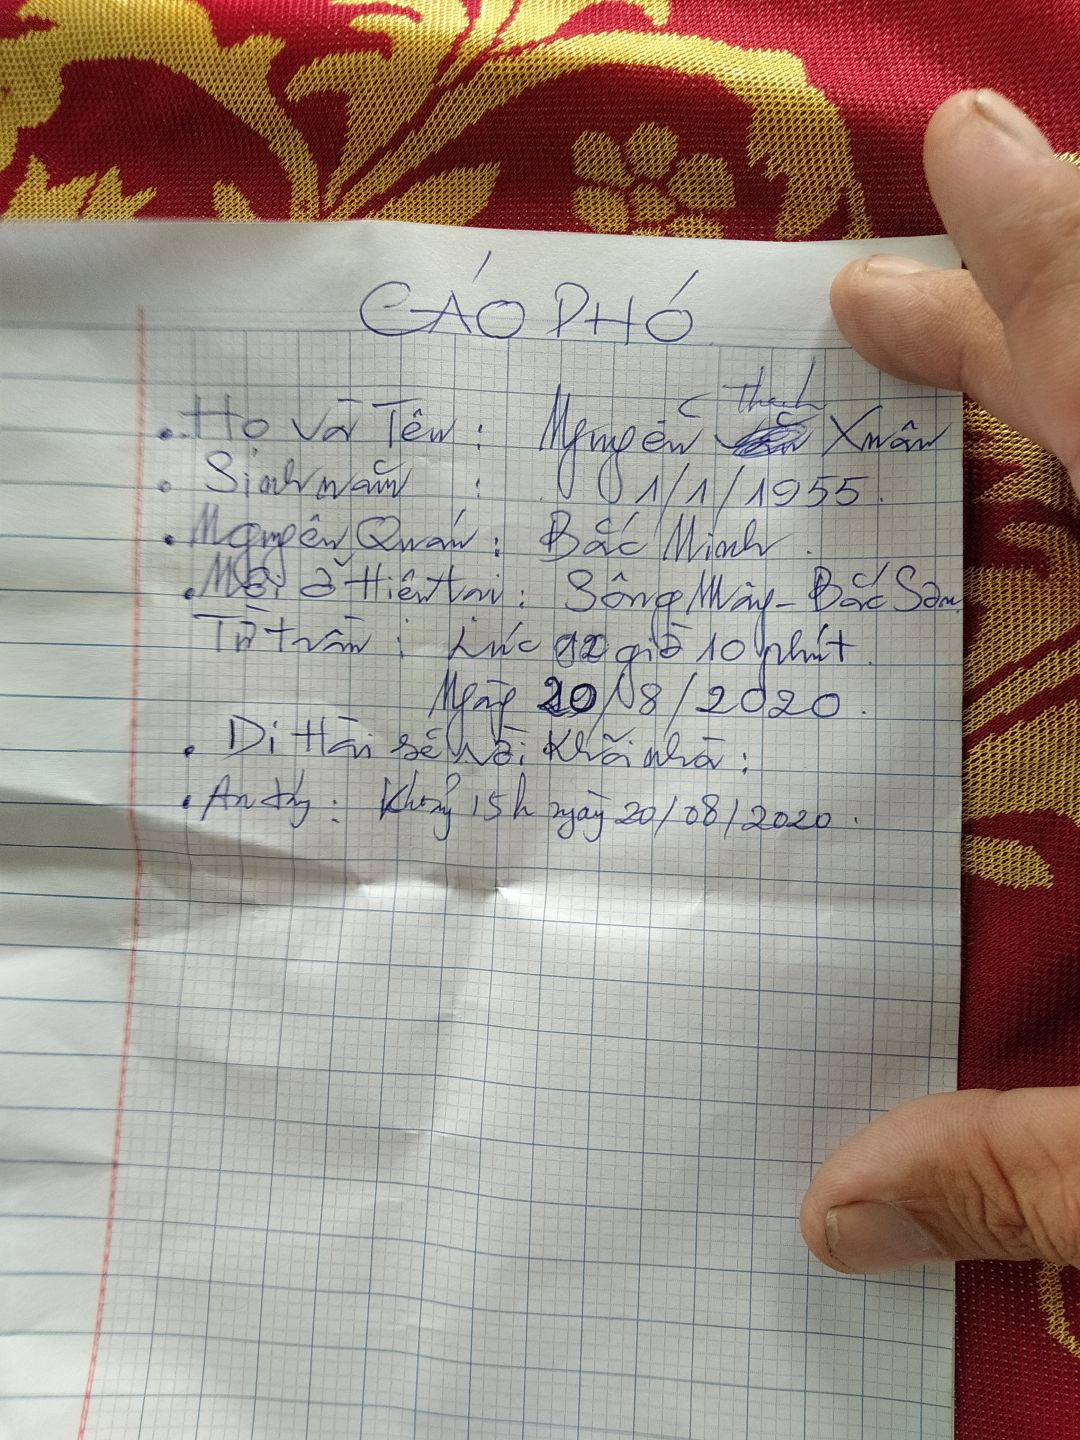 CÁO PHÓ
• Họ và Tên : Nguyễn Thanh Xuân
• Sinh năm : 1/1/1955.
• Nguyên Quán : Bắc Ninh.
• Nơi ở Hiện tại : Sông Mây - Bắc Sơn
Từ trần : Lúc 12 giờ 10 phút.
Ngày 20/8/2020.
• Di Hài sẽ rời Khỏi nhà :
• An táng : Khoảng 15h ngày 20/08/2020.